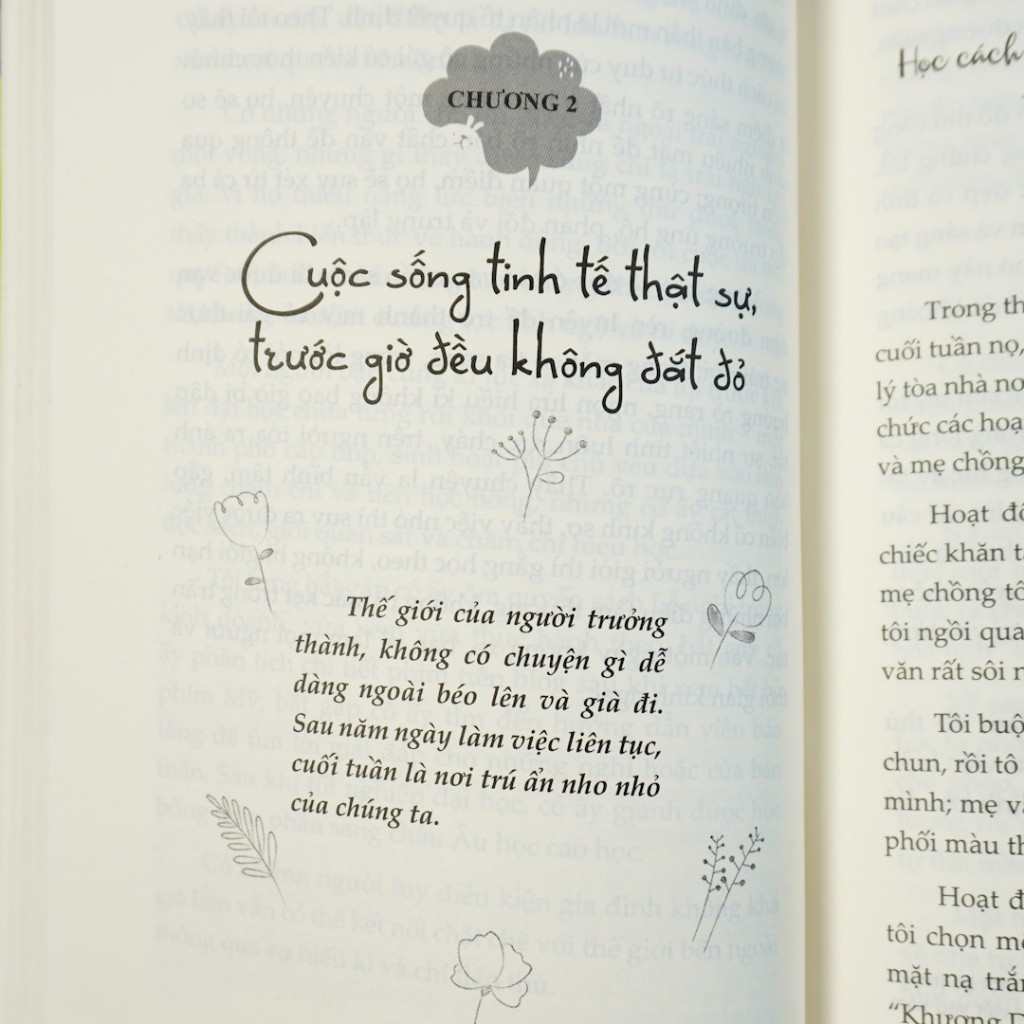 CHƯƠNG 2
Cuộc sống tinh tế thật sự,
trước giờ đều không đắt đỏ
Thế giới của người trưởng
thành, không có chuyện gì dễ
dàng ngoài béo lên và già đi.
Sau năm ngày làm việc liên tục,
cuối tuần là nơi trú ẩn nho nhỏ
của chúng ta.
Học cách
Trong th
cuối tuần nọ,
lý tòa nhà nơ
chức các hoạ
và mẹ chồng
Hoạt độ
chiếc khăn t
mẹ chồng tô
tôi ngồi qua
văn rất sôi n
Tôi buộ
chun, rồi tô
mình; mẹ v
phối màu th
Hoạt đ
tôi chọn mộ
mặt nạ trắn
“Khương D